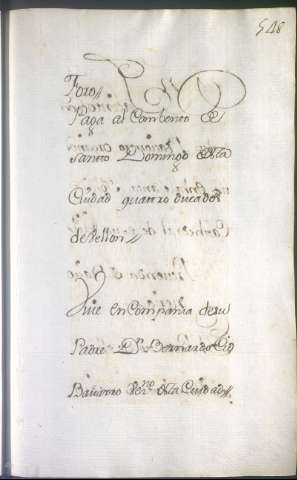 548
Foro//
Paga al Combento de
Santo Domingo desta
Ciudad quattro ducados
de Vellon//
Vive en Compañia de su
Padre Dn Bernardo
Vezno desta Ciudad//